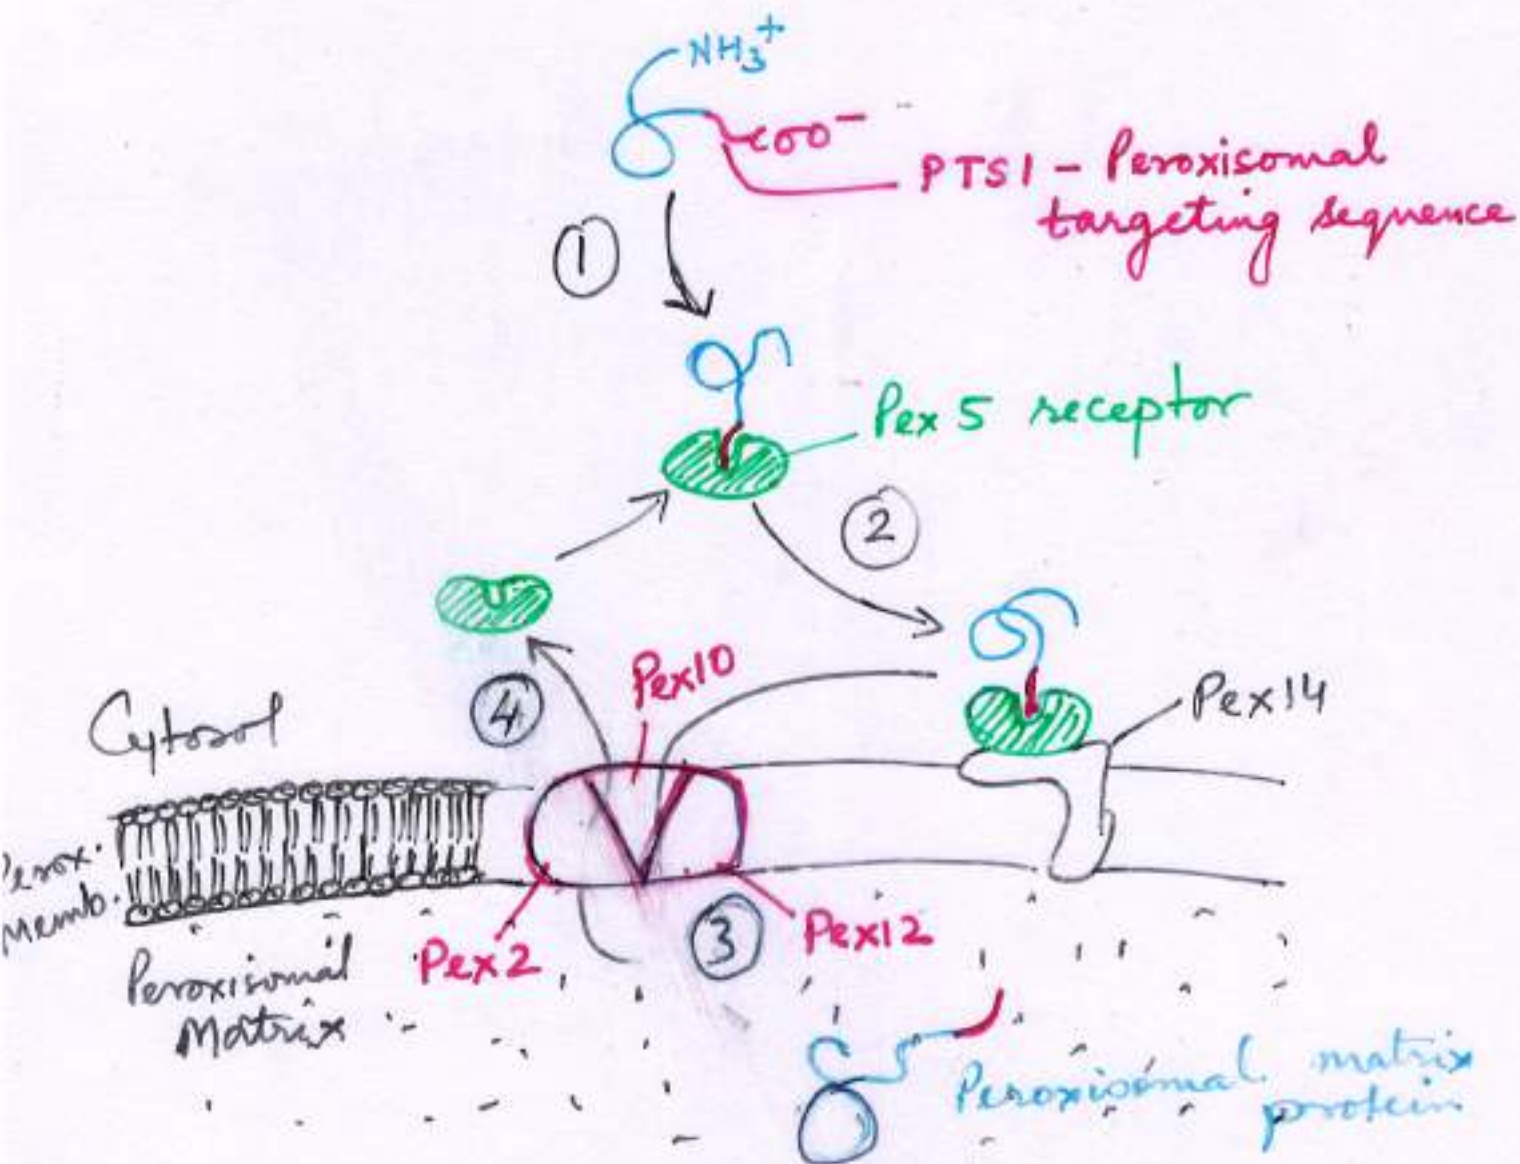 NH₃⁺
COO⁻
PTS1 - Peroxisomal
targeting sequence
①
Pex 5 receptor
②
Pex10
④
Pex14
Cytosol
Perox.
Memb.
③
Pex12
Pex2
Peroxisomal
Matrix
Peroxisomal matrix
protein